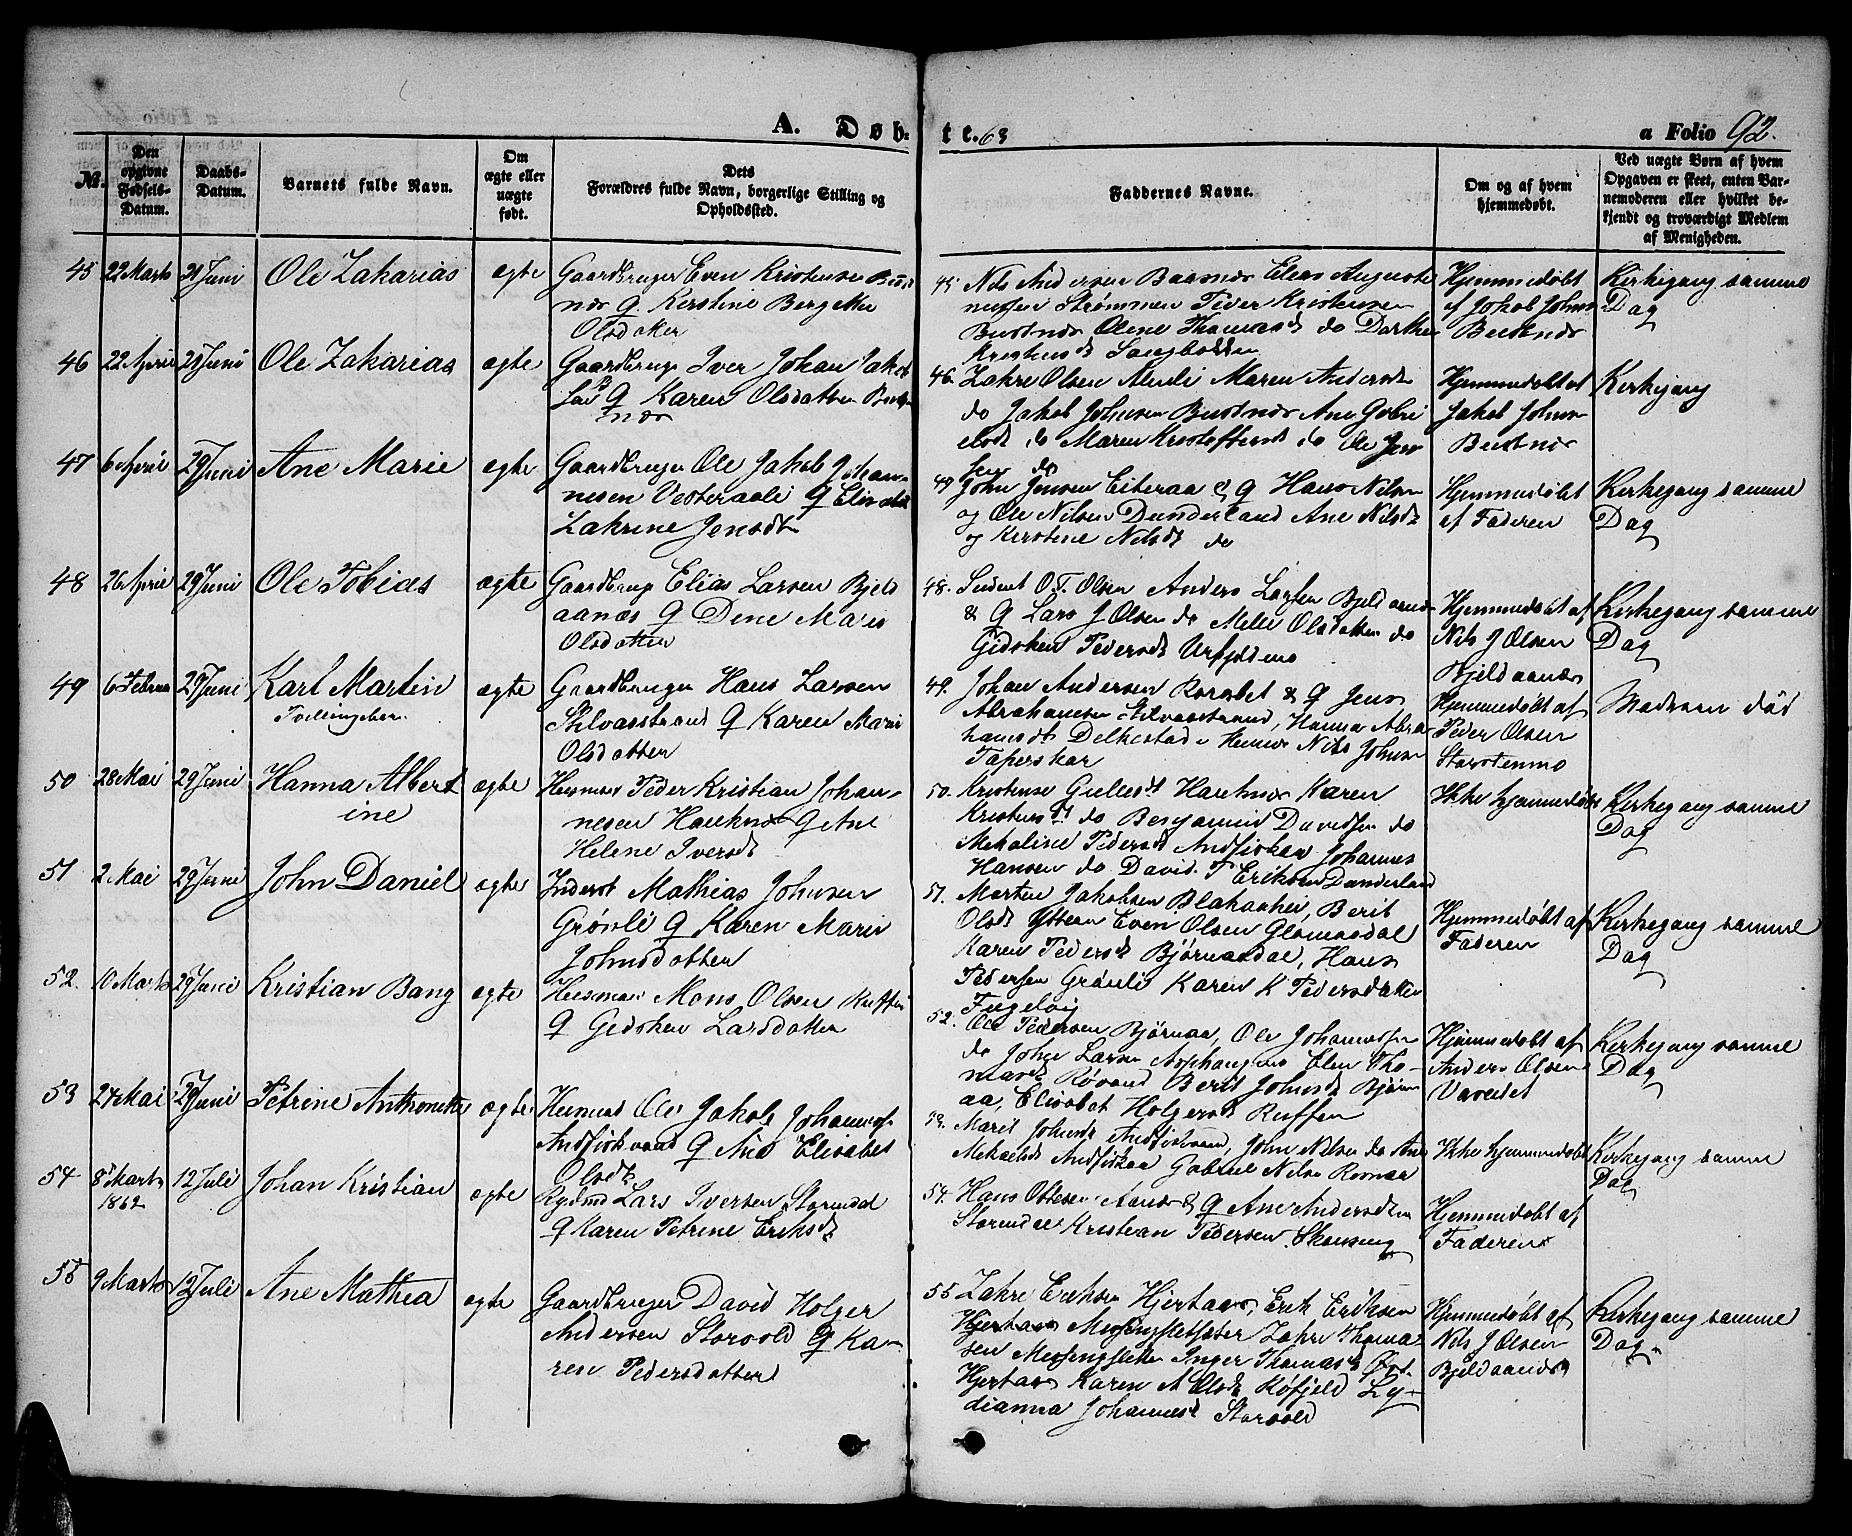 A. Døb=
te. 63
a Folio 92.
№.
Den opgivne Fødsels-Datum.
Daabs-Datum.
Barnets fulde Navn.
Om ægte eller uægte født.
Dets Forældres fulde Navn, borgerlige Stilling og Opholdssted.
Faddernes Navne.
Om og af hvem hjemmedøbt.
Ved uægte Børn af hvem Opgaven er skeet, enten Barnemoderen eller hvilket bekjendt og troværdigt Medlem af Menigheden.
45 22 Marts 21 Juni Ole Zakarias ægte Gaardbruger Even Kristensen Bust
nes Q. Kerstine Bergette
Olsdatter
45 Nils Andersen Baasnes Elias Auguste
nussen Strømmen Peder Kristensen
Bustnes Olene Thomasd do Dorthe
Kristensd Langbakken
Hjemmedøbt
af Jakob Johns
Bustnes
Kirkegang samme
Dag
46 22 April 21 Juni Ole Zakarias ægte Gaardbruger Iver Johan Jakob
sen Q Karen Olsdatter Bust
nes
46. Zakre Olsen Maren Andersd
do Jakob Johnsen Bustnes Ane Gabri
elsd do Maren Kristoffersd do Ole Jen
sen do
Hjemmedøbt af
Jakob Johns
Bustnes
Kirkegang
47 6 April 29 Juni Ane Marie ægte Gaardbruger Ole Jakob Johan-
nesen Vesteraali Q Elisabet
Zakrine Jensdt
47 John Jensen Eiteraa & Q Hans Nilsen
og Ole Nilsen Dunderland Ane Nilsd
og Kerstine Nilsd do
Hjemmedøbt
af Faderen
Kirkegang samme
Dag
48 26 April 29 Juni Ole Tobias ægte Gaardbrug Elias Larsen Bjeld
aanæs Q Dine Maria
Olsdatter
48. Student O. T. Olsen Anders Larsen Bjeldaanes
& Q Lars J Olsen do Melli Olsdatter do
Gidsken Pedersd Urfjeldmo
Hjemmedøbt af
Nils J Olsen
Bjeldaanes
Kirkegang samme
Dag
49 6 Februar 29 Juni Karl Martin ægte Gaardbruger Hans Larsen
Tvillingebarn
Stilvasstrand Q Karen Marie
Olsdatter
49. Johan Andersen & Q Jens
Abrahamsen Stilvasstrand, Hanna Abra
hamsdt Nils Johnsen
Taperskar
Hjemmedøbt af
Peder Olsen
Storstenmo
Moderen død
50 28 Mai 29 Juni Hanna Albert ægte Husmand Peder Kristian Johan-
ine
nesen Hauknes Q Ane
Helene Iversdt
50. Kristense Hauknes Karen
Kristensdt do Benjamin Davidsen do
Mekaline Pedersd Andfiskaa Johannes
Hansen do David T Eriksen Dunderland
Ikke hjemmedøbt
Kirkegang samme
Dag
51 2 Mai 29 Juni John Daniel ægte Inderst Mathias Johnsen
Grønli Q Karen Marie
Johnsdatter
51. Morten Jakobsen Blakaahei, Berit
Olsdt Ytteren Even Olsen Glomaadal
Karen Pedersdt Bjørnaadal, Hans
Pedersen Grønli Karen K Pedersdatter
Hjemmedøbt af
Faderen
Kirkegang samme
Dag
52. 10 Marts 29 Juni Kristian Bang ægte Husman Mons Olsen Ruffen
Q Gidsken Larsdatter
52. Ole Pedersen Bjørnaa, Ole Johannesen
do Johan Larsen Elen Tho-
masdt Røvand Berit Johnsdt Bjørn
aa, Elisabet Holgersd Ruffen
Hjemmedøbt af
Anders Olsen
Kirkegang samme
Dag
53 24 Mai 29 Juni Petrine Anthonette ægte Husmand Ole Jakob Johannes
Andfiskvand Q Ane Elisabet
Olsdtr
53. Marit Johnsdt Andfiskvand, John Nilsen do Ane
Mekaelsdt Andfiskaa Gabriel Nilsen
Ikke hjemmedøbt
Kirkegang samme
Dag
54 8 Marts 12 Juli Johan Kristian ægte Rydmd Lars Iversen Stormdal
1862
Q Karen Petrine Eriksdt
54. Hans Ottesen Aanes & Q Ane Andersdatter
Stormdal Kristian Pedersen Skonseng
Hjemmedøbt af
Faderen
55 9 Marts 12 Juli Ane Mathea ægte Gaardbruger David Holger
Andersen Storvold Q Ka-
ren Pedersdatter
55 Zakre Eriksen Hjertaas, Erik Eriksen
Hjertaas Messingsletten Zakri Thoma-
sen Messingsletten Inger Thomasdt
Hjertaas Karen M Olsdt Røfjeld Ly-
dianna Johannesd Storvold
Hjemmedøbt af
Nils J Olsen
Bjeldaanes
Kirkegang samme
Dag.